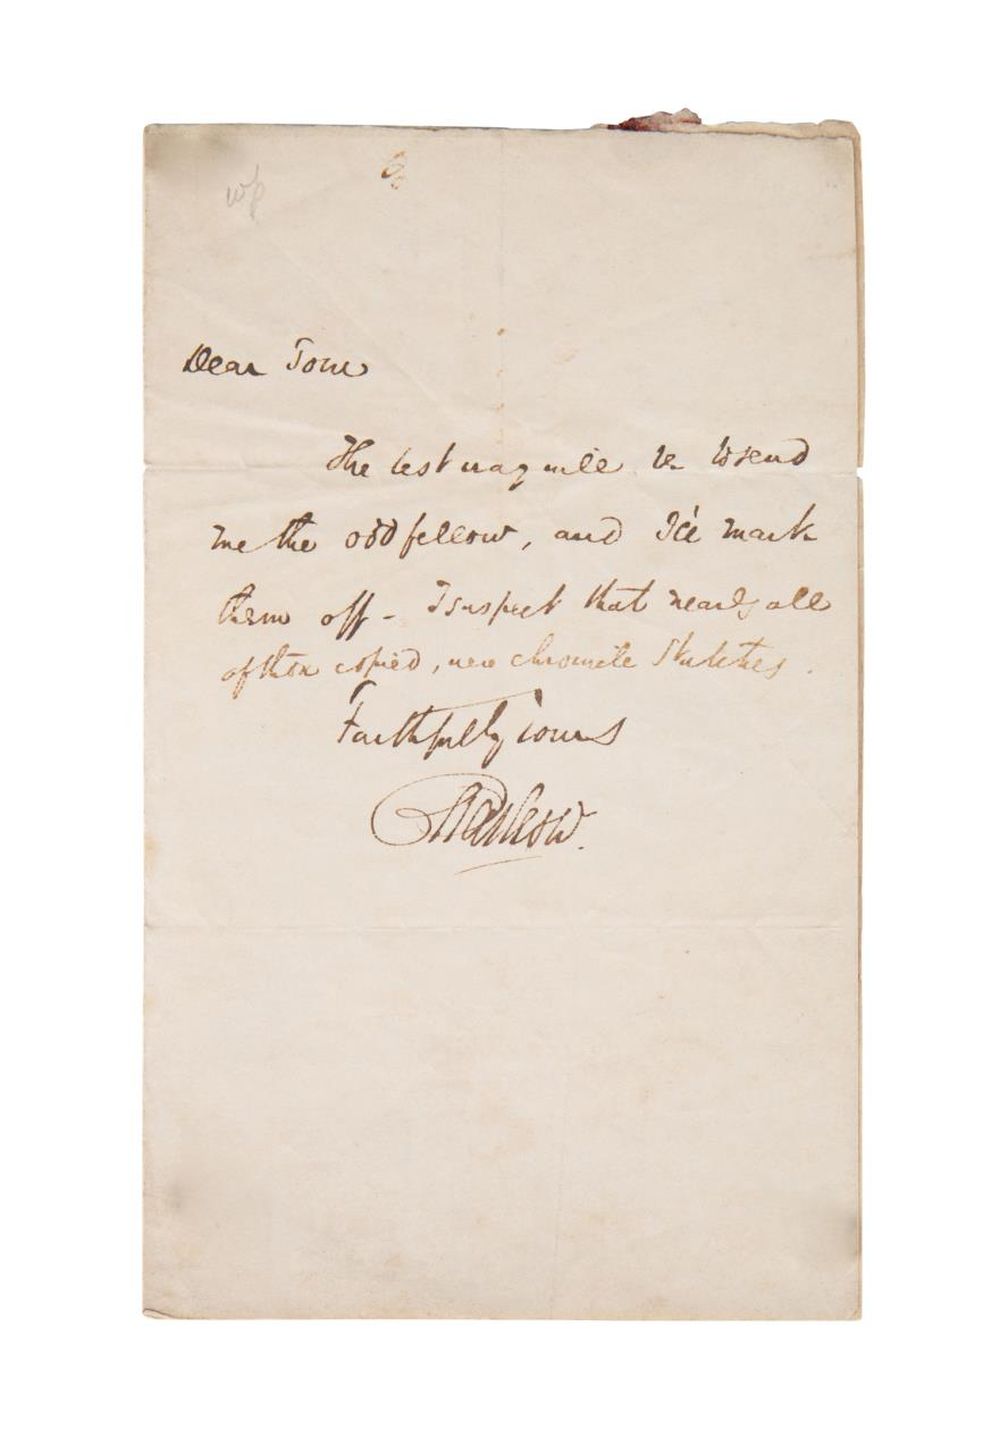 Dear Tom
The best way will be to send
me the odd fellow, and I'll mark
them off - I suspect that nearly all
of those copied, were chronicle Sketches.
Faithfully Yours